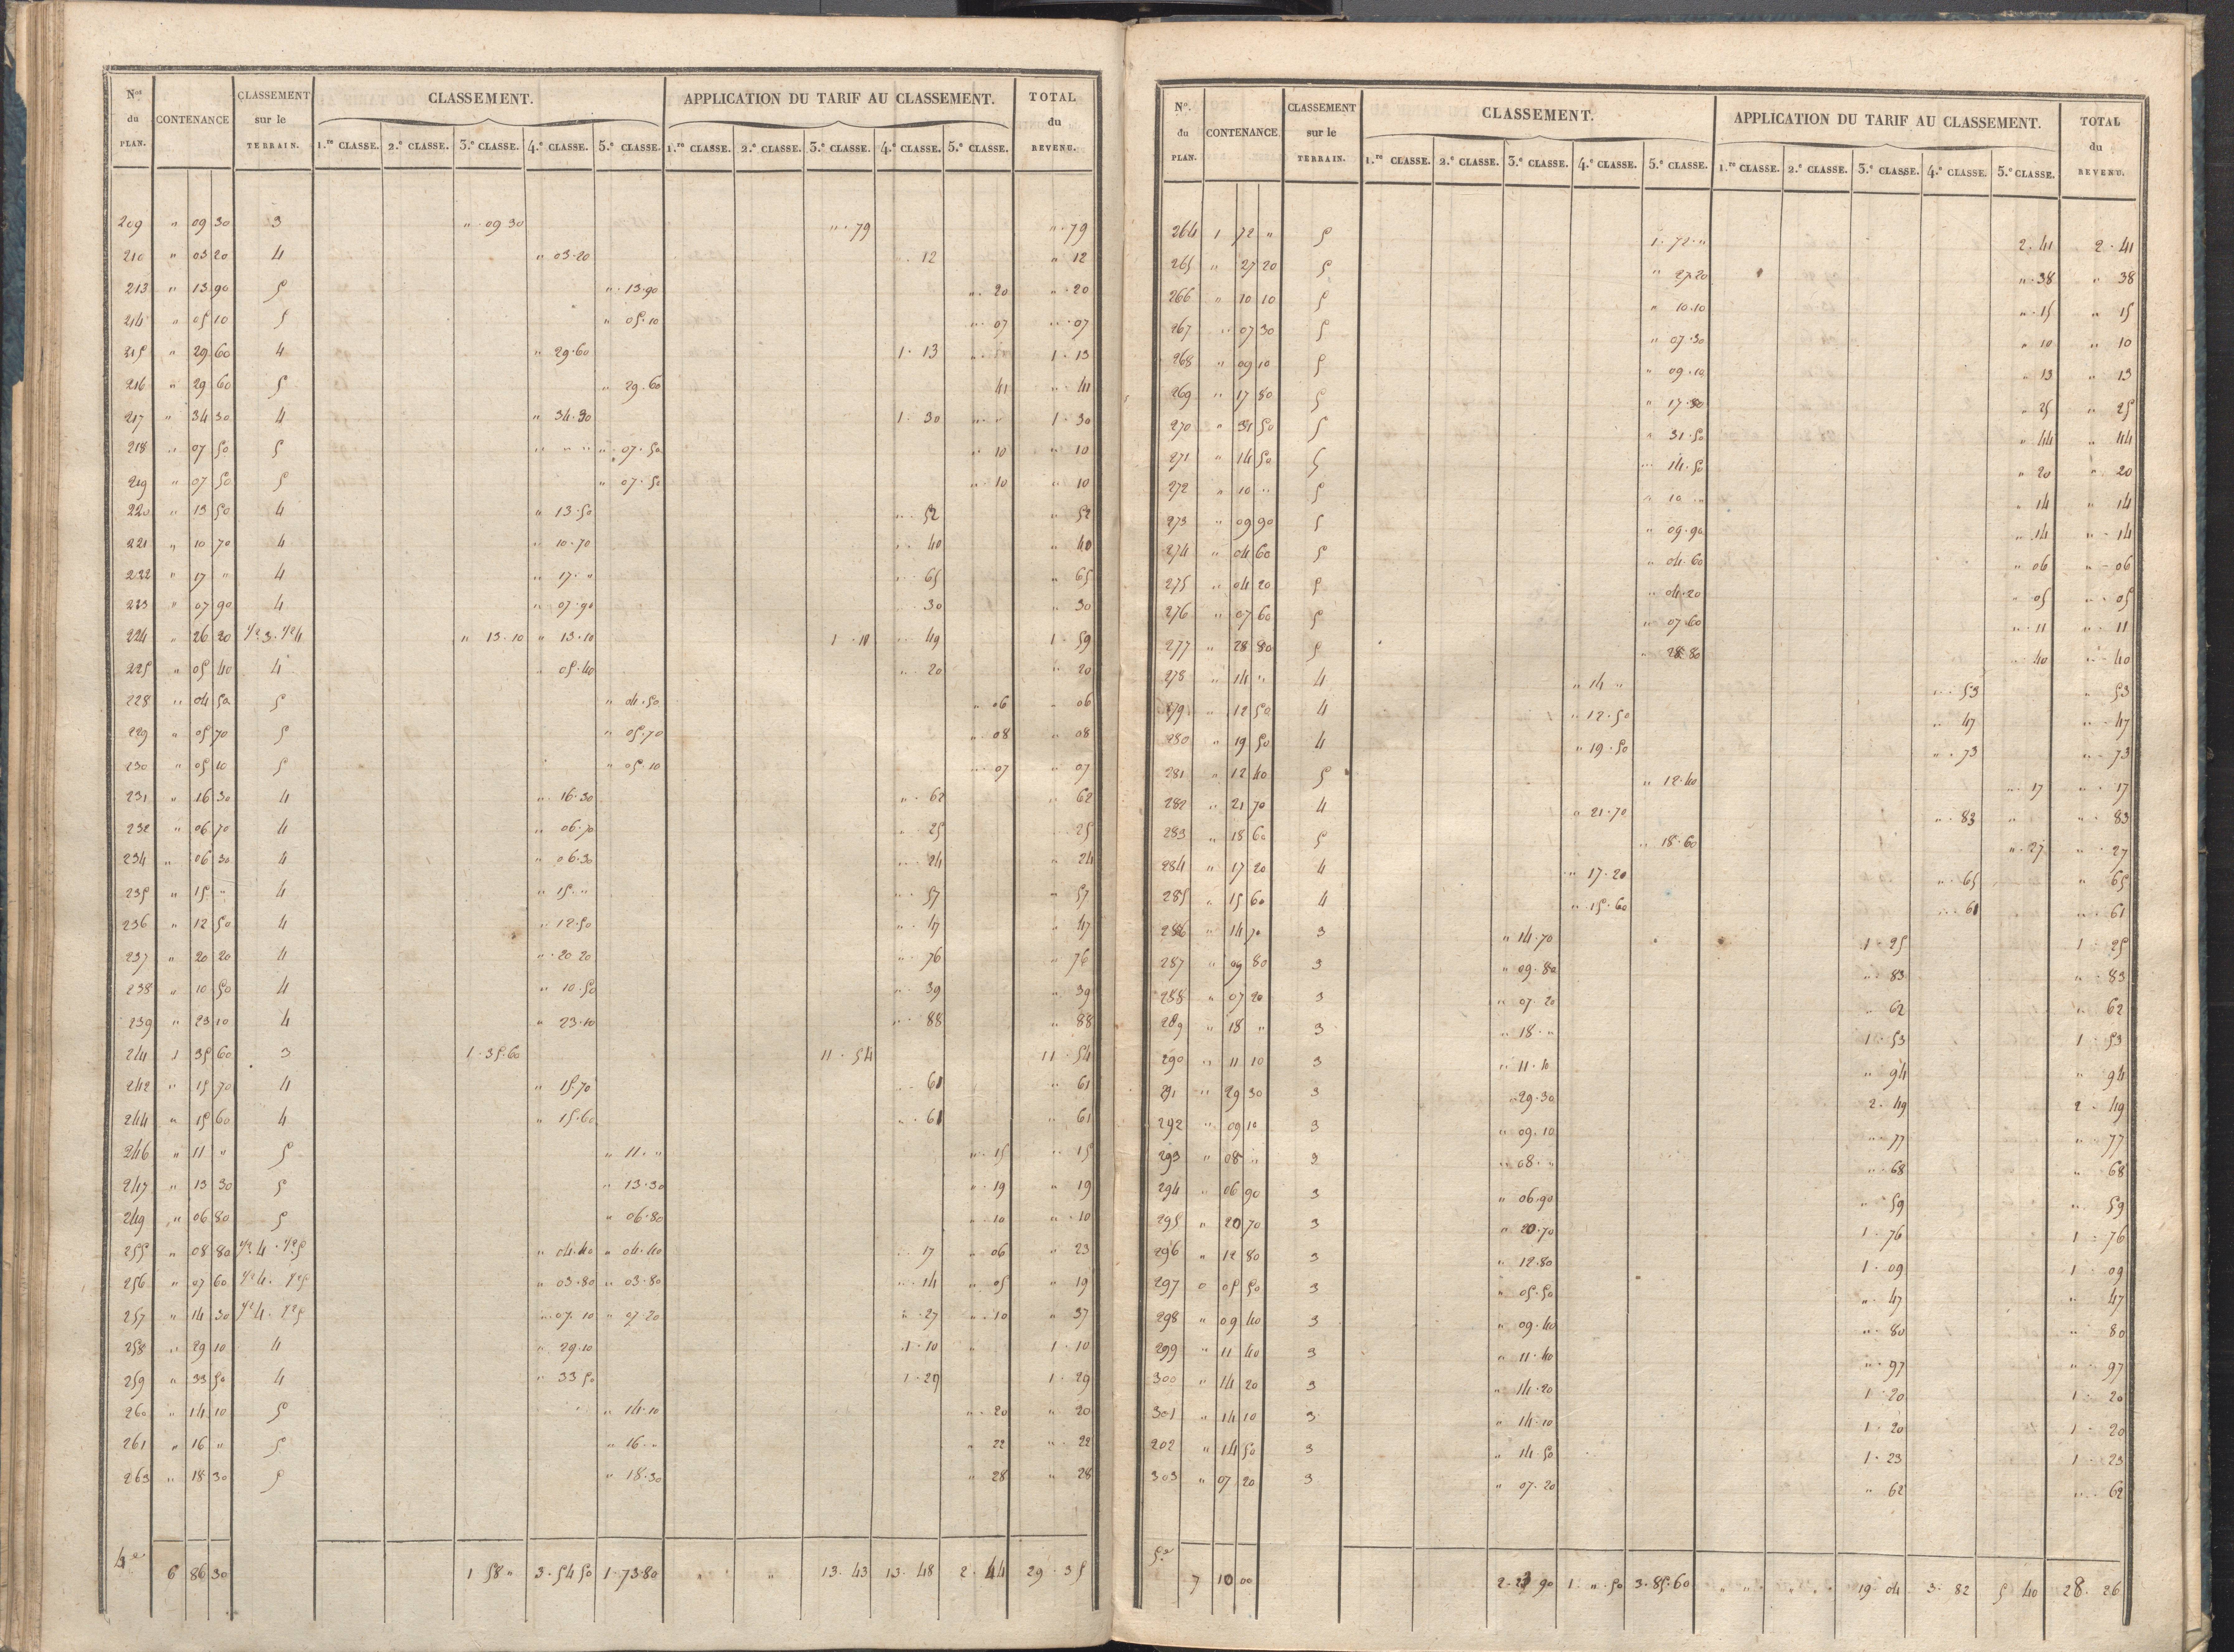 Nos du PLAN. CONTENANCE CLASSEMENT sur le TERRAIN. CLASSEMENT. APPLICATION DU TARIF AU CLASSEMENT. TOTAL du REVENU.
1.re CLASSE. 2.e CLASSE. 3.e CLASSE. 4.e CLASSE. 5.e CLASSE. 1.re CLASSE. 2.e CLASSE. 3.e CLASSE. 4.e CLASSE. 5.e CLASSE.
209 " 09 30 3 " 09 30 " 79 " 79
210 " 03 20 4 " 03.20 " 12 " 12
213 " 13 90 5 " 13.90 " 20 " 20
214 " 05 10 5 " 05.10 " 07 " 07
215 " 29 60 4 " 29.60 1. 13 1. 13
216 " 29 60 5 " 29.60 41 " 41
217 " 34 30 4 " 34.30 1. 30 " " 1. 30
218 " 07 50 5 " " " " 07.50 " 10 " 10
219 " 07 50 5 " 07.50 " 10 " 10
220 " 13 50 4 " 13.50 " 52 " 52
221 " 10 70 4 " 10.70 " 40 " 40
222 " 17 " 4 " 17. " " 65 " 65
223 " 07 90 4 " 07.90 " 30 " 30
224 " 26 20 1/2 3. 1/2 4 " 13.10 " 13.10 1. 10 " 49 1. 59
225 " 05 40 4 " 05.40 " 20 " 20
228 " 04 50 5 " 04.50 " 06 " 06
229 " 05 70 5 " 05.70 " 08 " 08
230 " 05 10 5 " 05.10 " 07 " 07
231 " 16 30 4 " 16.30 " 62 " 62
232 " 06 70 4 " 06.70 " 25 25
234 " 06 30 4 " 06.30 " 24 " 24
235 " 15 " 4 " 15. " " 57 " 57
236 " 12 50 4 " 12.50 " 47 " 47
237 " 20 20 4 " 20 20 " 76 " 76
238 " 10 50 4 " 10.50 " 39 " 39
239 " 23 10 4 " 23.10 " 88 " 88
241 1 35 60 3 1.35.60 11. 54 11. 54
242 " 15 70 4 " 15.70 " 61 " 61
244 " 15 60 4 " 15.60 " 61 " 61
246 " 11 " 5 " 11. " " 15 " 15
247 " 13 30 5 " 13.30 " 19 " 19
249 " 06 80 5 " 06.80 " 10 " 10
255 " 08 80 1/2 4. 1/2 5 " 04.40 " 04.40 " 17 " 06 " 23
256 " 07 60 1/2 4. 1/2 5 " 03.80 " 03.80 " 14 " 05 " 19
257 " 14 30 1/2 4. 1/2 5 " 07.10 " 07.20 " 27 " 10 " 37
258 " 29 10 4 " 29.10 1. 10 " 1. 10
259 " 33 50 4 " 33 50 1. 29 1. 29
260 " 14 10 5 " 14.10 " 20 " 20
261 " 16 " 5 " 16. " " 22 " 22
263 " 18 30 5 " 18.30 " 28 " 28
4e 6 86 30 1 58 " 3.54 50 1.73.80 " " 13. 43 13. 48 2. 44 29. 35
No. du PLAN. CONTENANCE. CLASSEMENT sur le TERRAIN. CLASSEMENT. APPLICATION DU TARIF AU CLASSEMENT. TOTAL du REVENU.
1.re CLASSE. 2.e CLASSE. 3.e CLASSE. 4.e CLASSE. 5.e CLASSE. 1.re CLASSE. 2.e CLASSE. 3.e CLASSE. 4.e CLASSE. 5.e CLASSE.
264 1 72 " 5 1. 72. " 2. 41 2. 41
265 " 27 20 5 " 27.20 " 38 " 38
266 " 10 10 5 " 10.10 " 15 " 15
267 " 07 30 5 " 07.30 " 10 " 10
268 " 09 10 5 " 09.10 " 13 " 13
269 " 17 80 5 " 17.80 " 25 " 25
270 " 31 50 5 " 31.50 " 44 " 44
271 " 14 50 5 " 14.50 " 20 " 20
272 " 10 " 5 " 10 " " 14 " 14
273 " 09 90 5 " 09.90 " 14 " 14
274 " 04 60 5 " 04.60 " 06 " 06
275 " 04 20 5 " 04.20 " 05 " 05
276 " 07 60 5 " 07.60 " 11 " 11
277 " 28 80 5 " 28.80 " 40 " 40
278 " 14 " 4 " 14 " " 53 " 53
279 " 12 50 4 " 12.50 " 47 " 47
280 " 19 50 4 " 19.50 " 73 " 73
281 " 12 40 5 " 12.40 " 17 " 17
282 " 21 70 4 " 21.70 " 83 " " 83
283 " 18 60 5 " 18.60 " 27 " 27
284 " 17 20 4 " 17.20 " 65 " 65
285 " 15 60 4 " 15.60 " 61 " 61
286 " 14 70 3 " 14.70 1. 25 1. 25
287 " 09 80 3 " 09.80 " 83 " 83
288 " 07 20 3 " 07.20 " 62 " 62
289 " 18 " 3 " 18. " 1. 53 1. 53
290 " 11 10 3 " 11.10 " 94 " 94
291 " 29 30 3 " 29.30 2. 49 2. 49
292 " 09 10 3 " 09.10 " 77 " 77
293 " 08 " 3 " 08. " " 68 " 68
294 " 06 90 3 " 06.90 " 59 " 59
295 " 20 70 3 " 20.70 1. 76 1. 76
296 " 12 80 3 " 12.80 1. 09 1. 09
297 " 05 50 3 " 05.50 " 47 " 47
298 " 09 40 3 " 09.40 " 80 " 80
299 " 11 40 3 " 11.40 " 97 " 97
300 " 14 20 3 " 14.20 1. 20 1. 20
301 " 14 10 3 " 14.10 1. 20 1. 20
202 " 14 50 3 " 14.50 1. 23 1. 23
303 " 07 20 3 " 07.20 " 62 " 62
5e 7 10 00 2.23 90 1. " .50 3.85.60 " " " " 19 04 3. 82 5 40 28. 26